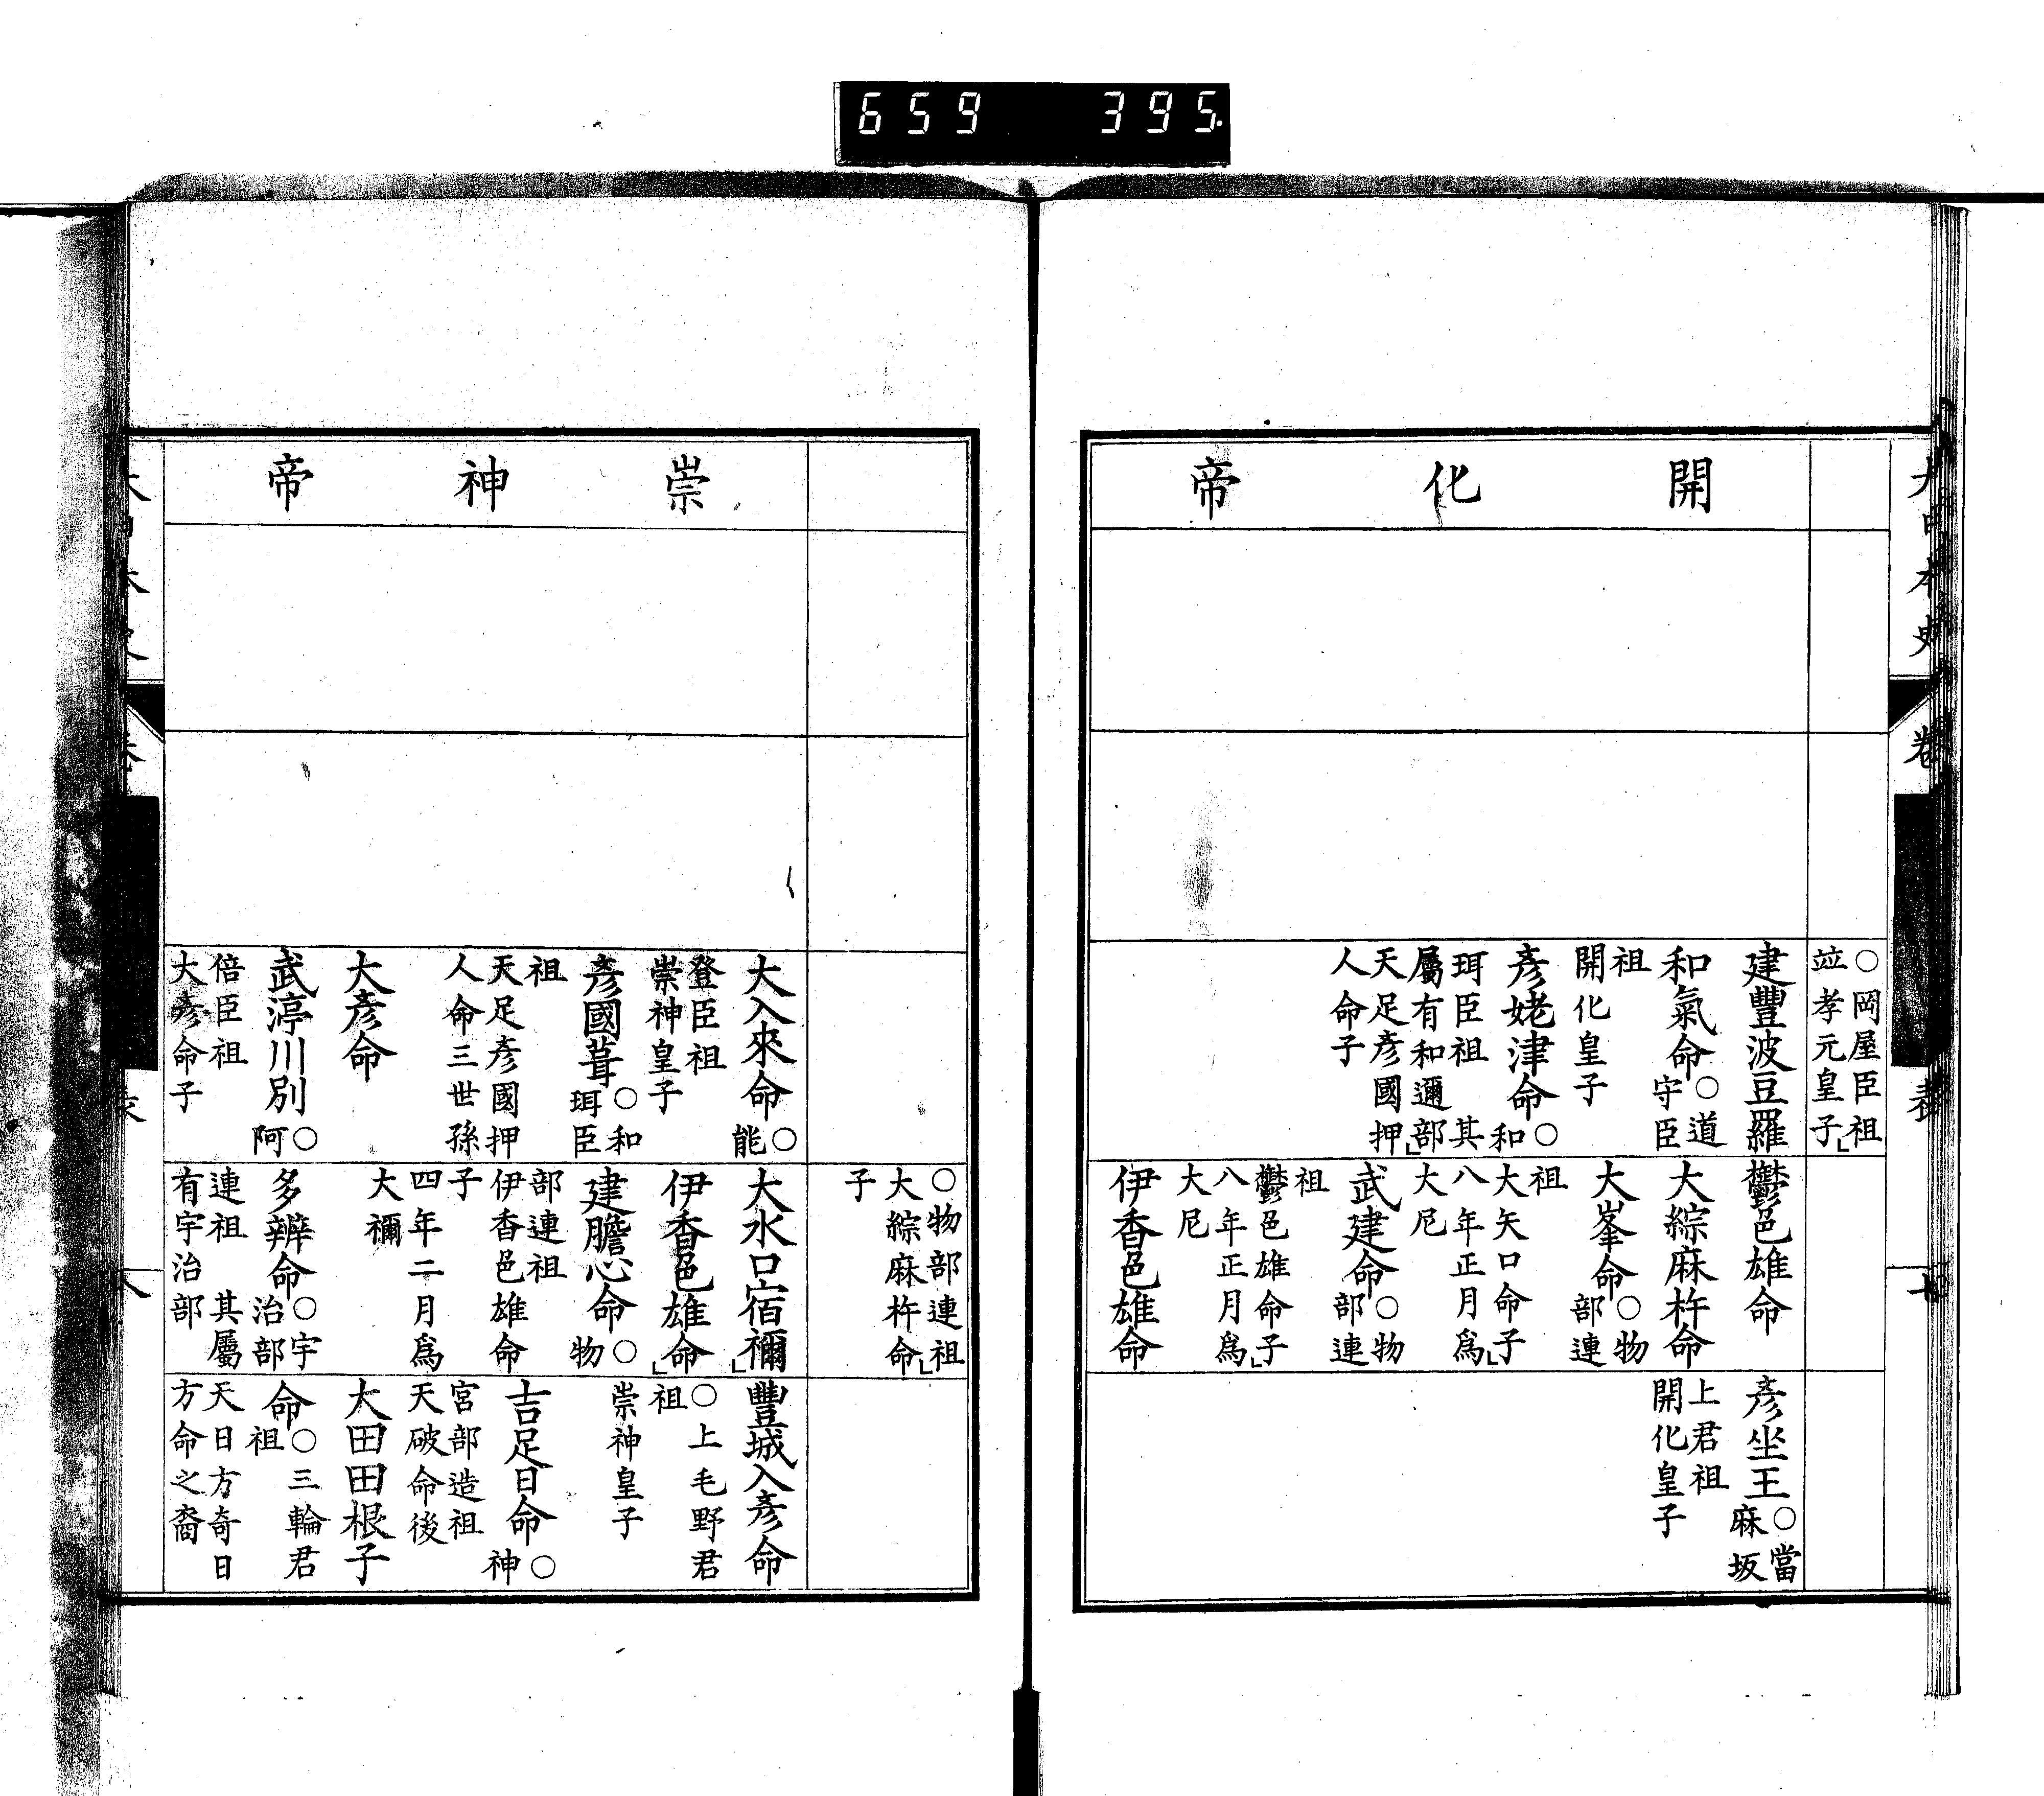 659 395.
大日本史
卷
表
七
○岡屋臣祖
竝孝元皇子」
開化帝
建豐波豆羅
和氣命○道
守臣
祖
開化皇子
彥姥津命○
和
珥臣祖其
屬有和邇部」
天足彥國押
人命子
鬱邑雄命
大綜麻杵命
大峯命○物
部連
祖
大矢口命子」
八年正月爲
大尼
武建命○物
部連
祖
鬱邑雄命子」
八年正月爲
大尼
伊香邑雄命
彥坐王○當
麻坂
上君祖
開化皇子
○物部連祖」
大綜麻杵命
子
崇神帝
大入來命○
能
登臣祖
崇神皇子
彥國葺○和
珥臣
祖
天足彥國押
人命三世孫
大彥命
武渟川別○
阿
倍臣祖
大彥命子
大水口宿禰」
伊香邑雄命」
建膽心命○
物
部連祖
伊香邑雄命
子
四年二月爲
大禰
多辨命○宇
治部
連祖其屬
有宇治部
豐城入彥命
○上毛野君
祖
崇神皇子
吉足日命○
神
宮部造祖
天破命後
大田田根子
命○三輪君
祖
天日方奇日
方命之裔